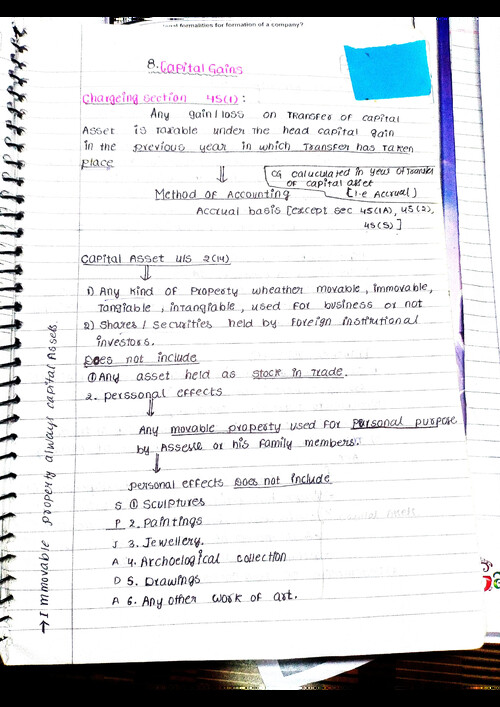 legal formalities for formation of a company?
8. Capital Gains
Chargeing section 45(1) :
Any gain/loss on Transfer of capital
Asset is taxable under the head capital gain
in the previous year in which Transfer has taken
place
CG caluculated in year of Transfer
of capital asset
[i.e Accrual]
Method of Accounting
Accrual basis [except sec 45(1A), 45(2),
45(5)]
Capital Asset u/s 2(14)
1) Any kind of Property wheather movable, immovable,
Tangiable, intangiable, used for business or not
2) Shares/ Securities held by Foreign institutional
investors.
Does not include
① Any asset held as stock in Trade.
2. perssonal effects
Any movable property used for Personal purpose
by Assesse or his Family members.
personal effects Does not include
S ① Sculptures
P 2. Paintings
J 3. Jewellery.
A 4. Archoelogical collection
D 5. Drawings
A 6. Any other work of art.
→ Immovable property always capital Assets.